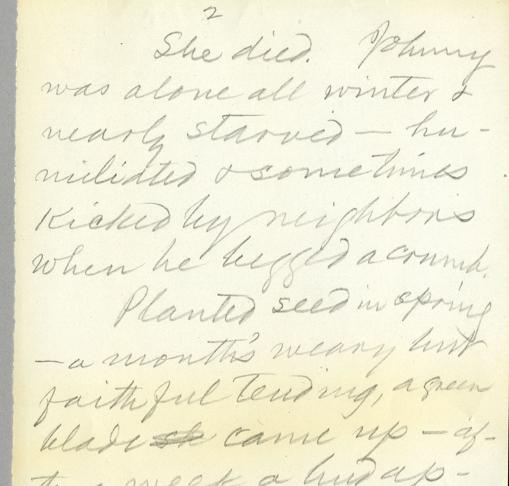 2
She died. Johnny
was alone all winter &
nearly starved — hu-
miliated & sometimes
kicked by neighbors
when he begged a crumb.
Planted seed in spring
— a month's weary but
faithful tending, a green
blade came up — af-
ter a week a bud ap-